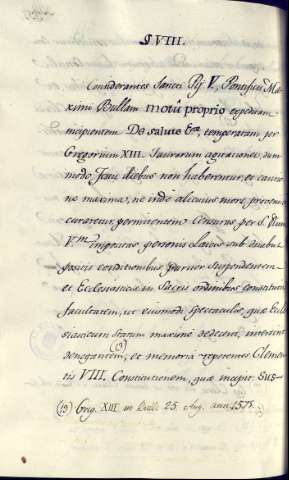 § VIII.
Considerantes Sancti Pij V. Pontificis Ma-
ximi Bullam motû proprio expeditam
incipientem De salute &ra, temperatam per
Gregorium XIII. Taurorum agitationes, dum-
modo festi diebus non haberentur, et cautio-
ne maxima, ne inde alicuius mors, proveniret
curaretur, permittentem
V.m impositas personis Laicis sub duabus
conditionibus suspendentem
et Ecclesiasticis in Sacris ordinibus constitutis
facultatem, ut eiusmodi spectaculis, quæ Eccle-
siasticum statum maximè dedecent, interesse
denegantem, (19) et memoria repetentes Clemen-
tis VIII. Constitutionem, quæ incipit Sus-
(19) Greg. XIII. in Bulla 25. Aug. anni 1575.